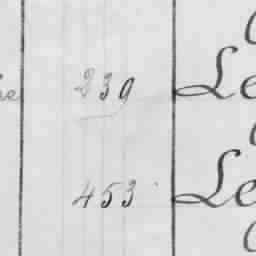 239 Le
453 Le